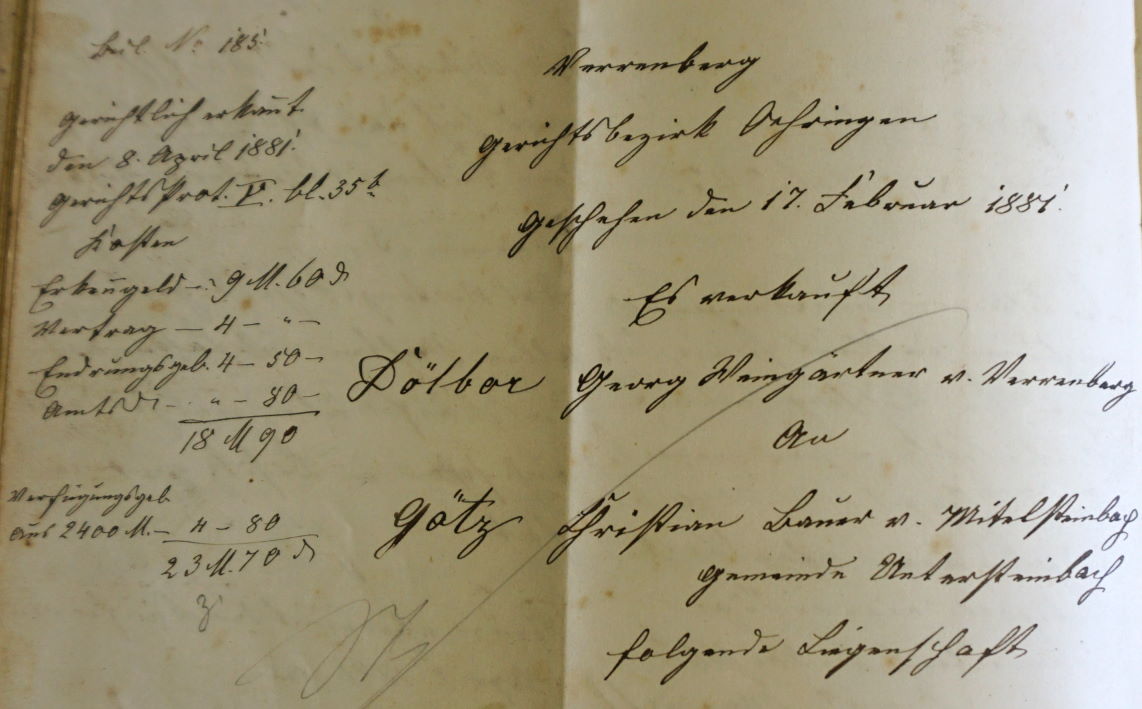 Beil. No. 185.
gerichtlich erkannt
den 8. April 1881.
Gerichts Prot. V. bl. 35b
Kosten
Erkenngeld – 9 M. 60 d
Vertrag – 4 – " –
Endrungsgeb. 4 – 50 –
Amtsd – " – 80 –
18 M 90
Verfügungsgeb
aus 2400 M. – 4 – 80
23 M. 70 d
Verrenberg
Gerichtsbezirk Oehringen
Geschehen den 17. Februar 1881.
Es verkauft
Georg Weingärtner v. Verrenberg
An
Götz Christian Bauer v. Mitelsteinbach
Gemeinde Untersteinbach
folgende Liegenschaft